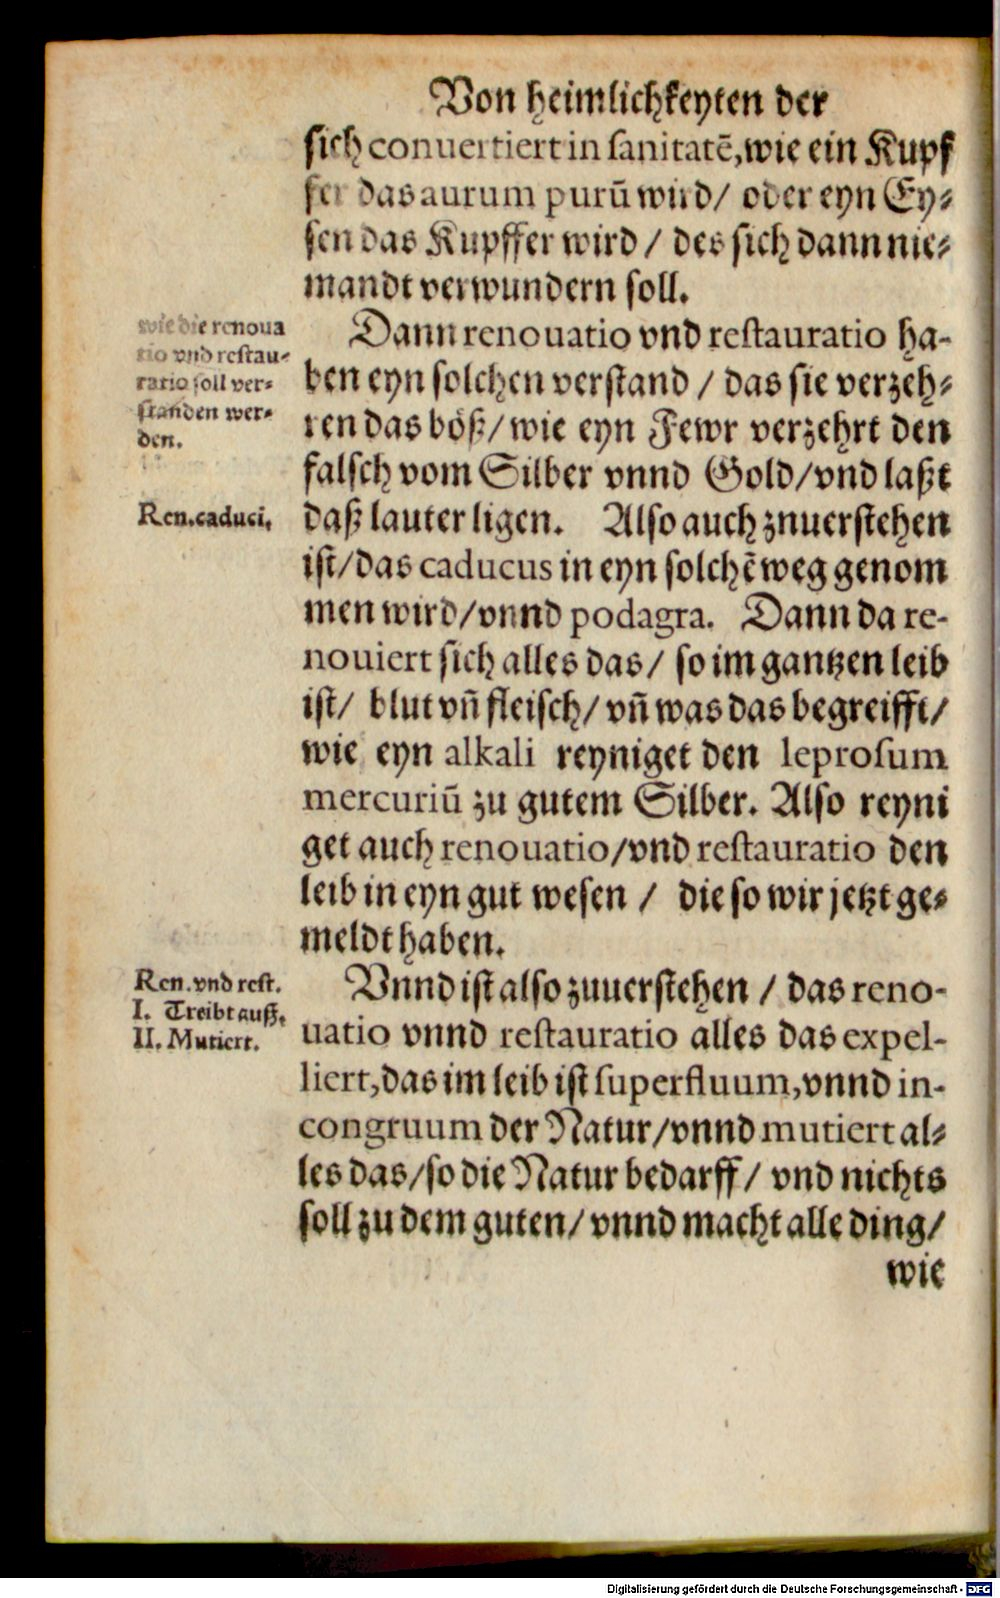 Von heimlichkeyten der
sich conuertiert in sanitatē, wie ein Kupf
fer das aurum purū wird/ oder eyn Ey⸗
sen das Kupffer wird / des sich dann nie⸗
mandt verwundern soll.
wie die renoua
tio vnd restau⸗
ratio soll ver⸗
standen wer⸗
den.
Dann renouatio vnd restauratio ha-
ben eyn solchen verstand / das sie verzeh⸗
ren das böß/ wie eyn Fewr verzehrt den
falsch vom Silber vnnd Gold/ vnd laßt
Ren. caduci.
daß lauter ligen. Also auch znuerstehen
ist/ das caducus in eyn solchē weg genom
men wird/ vnnd podagra. Dann da re-
nouiert sich alles das/ so im gantzen leib
ist/ blut vñ fleisch/ vñ was das begreifft/
wie eyn alkali reyniget den leprosum
mercuriū zu gutem Silber. Also reyni
get auch renouatio/ vnd restauratio den
leib in eyn gut wesen / die so wir jetzt ge⸗
meldt haben.
Ren. vnd rest.
I. Treibt auß.
II. Mutiert.
Vnnd ist also zuuerstehen / das reno-
uatio vnnd restauratio alles das expel-
liert, das im leib ist superfluum, vnnd in-
congruum der Natur/ vnnd mutiert al⸗
les das/ so die Natur bedarff/ vnd nichts
soll zu dem guten/ vnnd macht alle ding/
wie
Digitalisierung gefördert durch die Deutsche Forschungsgemeinschaft - DFG